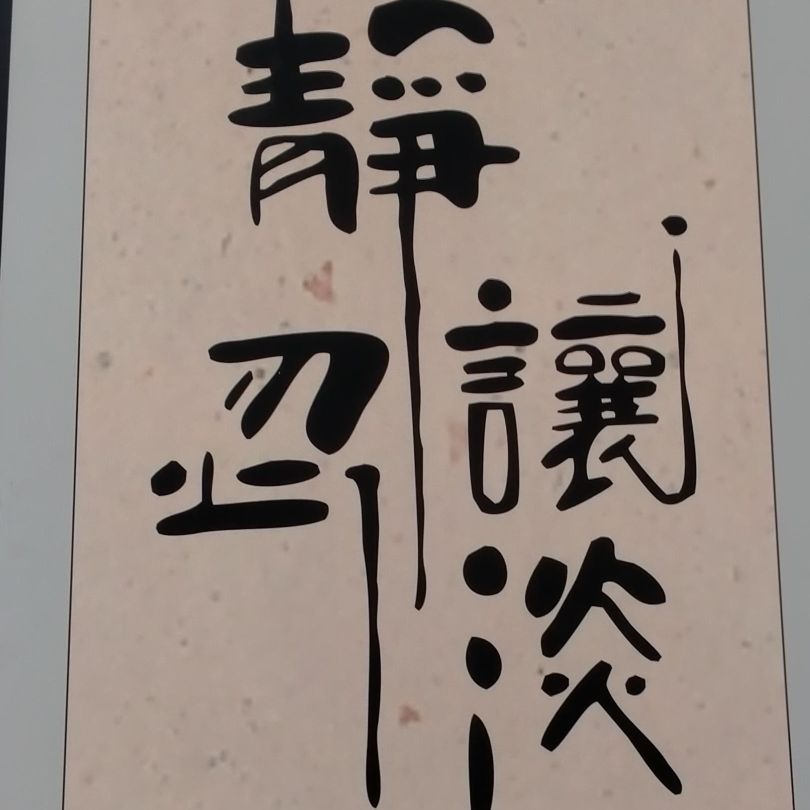 靜忍
讓淡